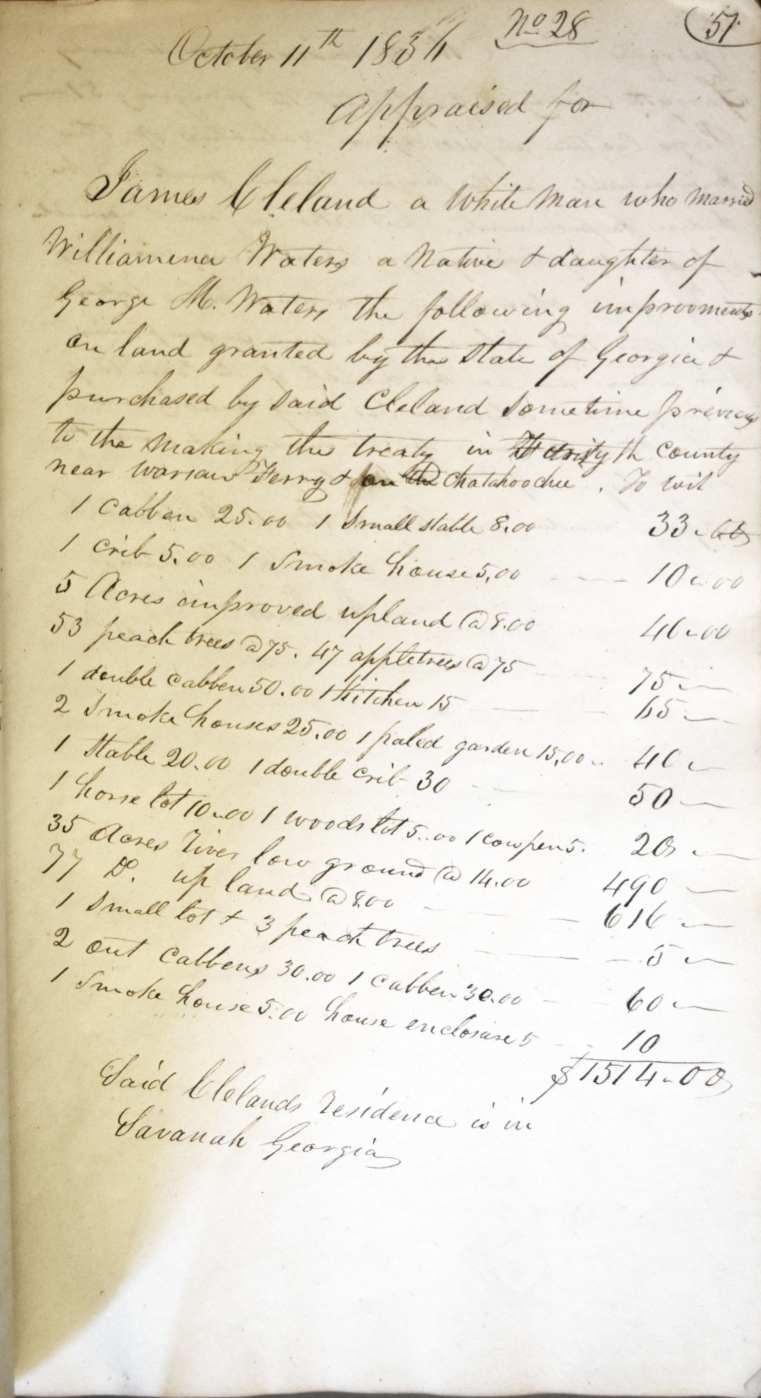 No 28
57
October 11th 1836
Appraised for
James Cleland a White Man who married
Williamina Waters a Native & daughter of
George M. Waters the following improvements
on land granted by the State of Georgia &
purchased by said Cleland Sometime previous
to the making the treaty in Forsyth County
near Warsaw Ferry & on the Chatahoochee. To wit
1 Cabben 25.00 1 Small stable 8.00 33.00
1 crib 5.00 1 Smoke house 5,00 10.00
5 Acres improved upland @ 8.00 40.00
53 peach trees @ 75. 47 appletrees @ 75 75.—
1 double cabben 50.00 1 Kitchen 15 65—
2 Smoke houses 25.00 1 paled garden 15,00 40—
1 Stable 20.00 1 double crib 30 50—
1 horse lot 10.00 1 woods lot 5.00 1 cowpen 5. 20—
35 Acres river low ground @ 14.00 490—
77 Do. up land @ 8.00 616—
1 Small lot & 3 peach trees 5—
2 out Cabbens 30.00 1 Cabben 30.00 60—
1 Smoke house 5.00 house enclosure 5 10
$1514.00
Said Clelands residence is in
Savanah Georgia